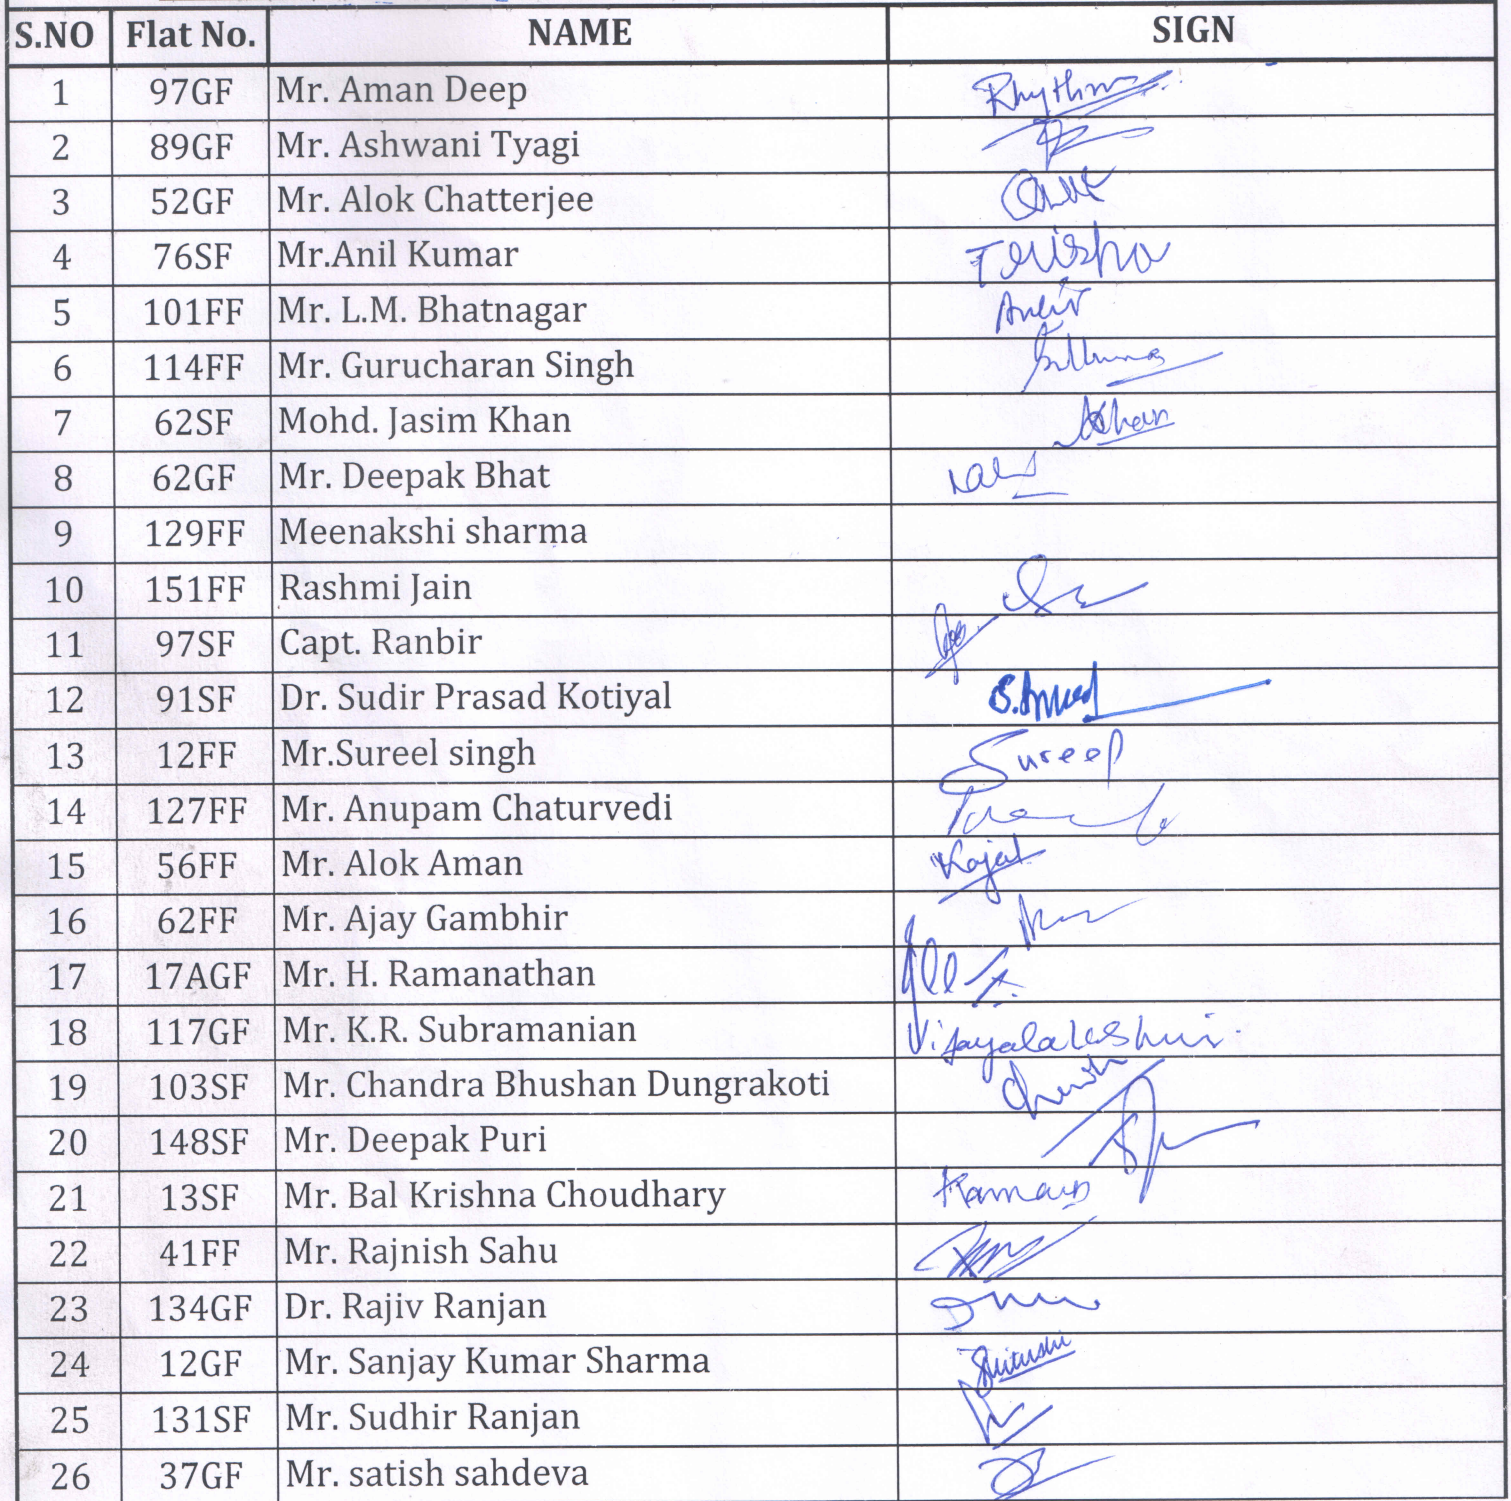 S.NO Flat No. NAME SIGN
1 97GF Mr. Aman Deep Rhythm
2 89GF Mr. Ashwani Tyagi
3 52GF Mr. Alok Chatterjee
4 76SF Mr.Anil Kumar
5 101FF Mr. L.M. Bhatnagar
6 114FF Mr. Gurucharan Singh
7 62SF Mohd. Jasim Khan Khan
8 62GF Mr. Deepak Bhat
9 129FF Meenakshi sharma
10 151FF Rashmi Jain
11 97SF Capt. Ranbir
12 91SF Dr. Sudir Prasad Kotiyal
13 12FF Mr.Sureel singh
14 127FF Mr. Anupam Chaturvedi
15 56FF Mr. Alok Aman Kajal
16 62FF Mr. Ajay Gambhir
17 17AGF Mr. H. Ramanathan
18 117GF Mr. K.R. Subramanian Vijayalakshmi
19 103SF Mr. Chandra Bhushan Dungrakoti
20 148SF Mr. Deepak Puri
21 13SF Mr. Bal Krishna Choudhary
22 41FF Mr. Rajnish Sahu
23 134GF Dr. Rajiv Ranjan
24 12GF Mr. Sanjay Kumar Sharma
25 131SF Mr. Sudhir Ranjan
26 37GF Mr. satish sahdeva